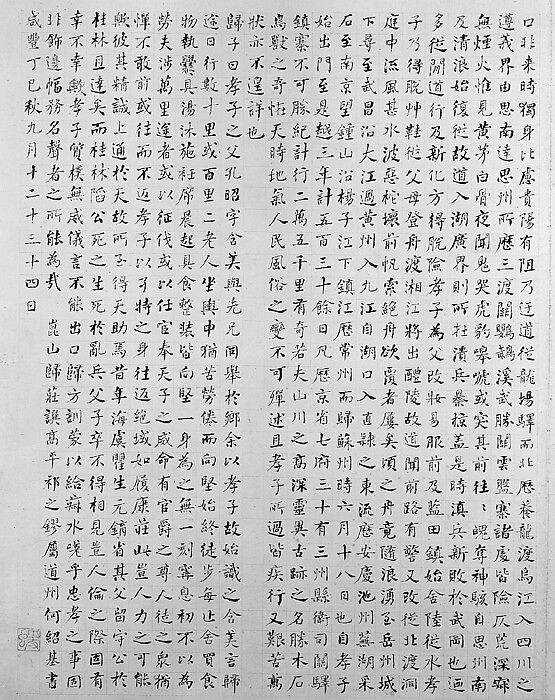 口非來時獨身比慮貴陽有阻乃迂道從龍場驛而北歷養龍渡烏江入四川之
遵義界由思南達思州所歷三渡關鸚鵡溪武勝關雲盤寨諸處皆險仄荒深寂
無煙火惟見黃茅白骨夜聞鬼哭虎豹嗥嘷或突其前往往魄奪神駭自思州南
及清浪始復從故道入湖廣界則所在潰兵暴掠蓋是時滇兵新敗於武岡也迺
多從閒道行及新化方得脫險孝子為父改妝易服前及藍田鎮始舍陸從水孝
子乃得脫艸鞋從父母登舟渡湘江將出醴陵故道聞前路有警又改從北渡洞
庭中流風甚水波惡桅壞前帆索絕舟欲覆者屢矣頃之舟竟隨浪湧至岳州城
下尋至武昌沿大江過黃州入九江自湖口入直隸之東流歷安慶池州蕪湖采
石至南京望鍾山沿楊子江下鎮江歷常州而歸蘇州時六月十八日也自孝子
始出門至是越三年計五百三十餘日凡歷京省七府三十有三州縣衛司關驛
鎮寨不可勝紀計行二萬五千里有奇若夫山川之高深靈異古跡之名勝木石
鳥獸之奇怪天時地氣人民風俗之變不可殫述且孝子所過皆疾行又艱苦萬
狀亦不遑詳也
歸子曰孝子之父孔昭字含美與先兄同舉於鄉余以孝子故始識之含美言歸
途日行數十里或百里二老人坐輿中猶苦勞倦而向堅始終徒步每止舍買食
物執爨具湯沐施衽席晨起具食整裝皆向堅一身為之無一刻寧息初不以為
勞夫涉萬里者或以征伐或以任官奉天子之威命有官爵之尊人徒之衆猶
憚不敢前或往而不返孝子以可特之身往返絕域如履康莊此豈人力之可能
歟彼其精誠上通於天故所至得天助焉昔年海虞瞿生元銷省其父留守公於
桂林且達矣而桂林陷公死之生死於亂兵父子卒不得相見豈人倫之際固有
幸不幸歟孝子質樸無威儀言不能出口歸方訓蒙以給菽水嗟乎忠孝之事固
非飾邊幅務名聲者之所能為哉　崑山歸莊譔高平祁之鏐屬道州何紹基書
咸豐丁巳秋九月十二十三十四日